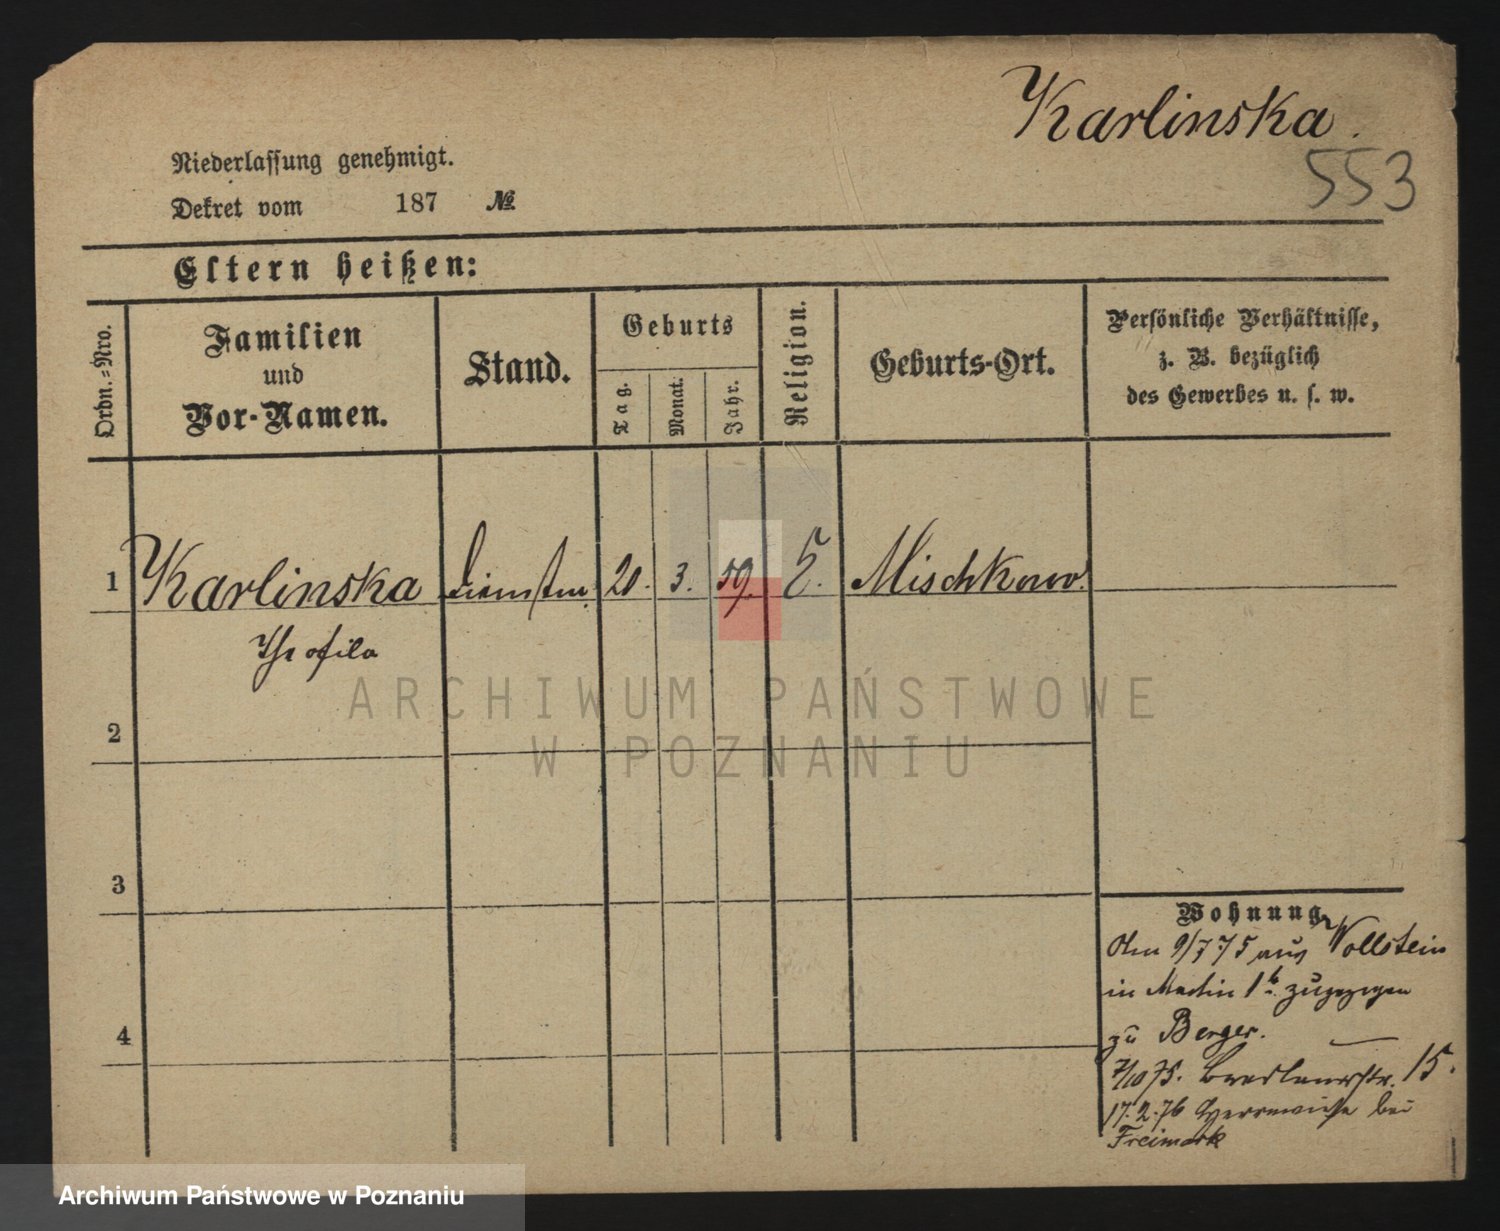 Karlinska.
553
Niederlassung genehmigt.
Dekret vom 187 №
Eltern heißen:
Ordn.=Nro.
Familien
und
Vor-Namen.
Stand.
Geburts
Tag.
Monat.
Jahr.
Religion.
Geburts-Ort.
Persönliche Verhältnisse,
z. B. bezüglich
des Gewerbes u. s. w.
1 Karlinska 20. 3. 59. Mischkowo.
Theofila
ARCHIWUM PAŃSTWOWE
W POZNANIU
2
3
4
Wohnung
Am 9/7 75 aus Wollstein
in Martin 1 b. zugezogen
zu Berger.
7/10 75. Breslauerstr. 15.
17.2.76 bei
Freimark
Archiwum Państwowe w Poznaniu